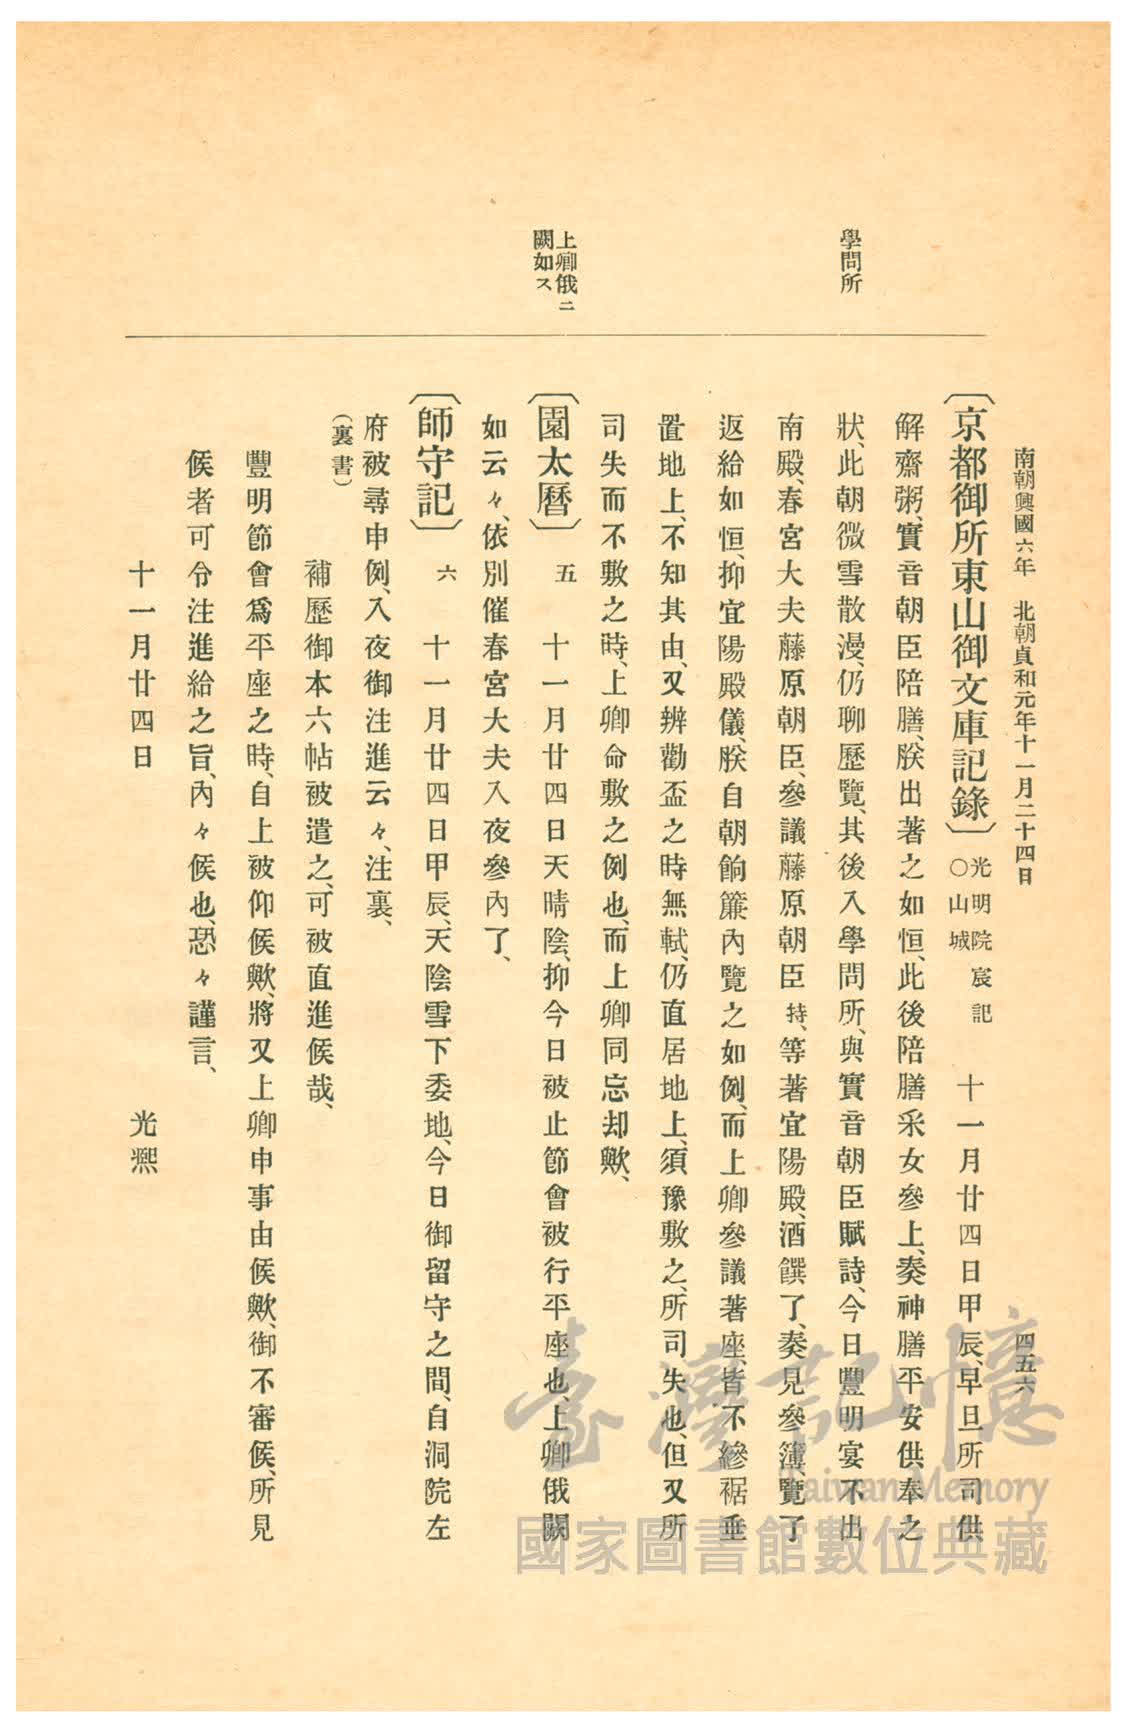 南朝興國六年　北朝貞和元年十一月二十四日
四五六
學問所
上卿俄ニ
闕如ス
〔京都御所東山御文庫記錄〕　光明院宸記　十一月廿四日甲辰、早旦所司供
○山城
解齋粥、實音朝臣陪膳、朕出著之如恒、此後陪膳采女參上、奏神膳平安供奉之
狀、此朝微雪散漫、仍聊歷覽、其後入學問所、與實音朝臣賦詩、今日豐明宴不出
南殿、春宮大夫藤原朝臣、參議藤原朝臣持、等著宜陽殿、酒饌了、奏見參簿、覽了
返給如恒、抑宜陽殿儀、朕自朝餉簾內覽之如例、而上卿參議著座、皆不縿裾垂
置地上、不知其由、又辨勸盃之時無軾、仍直居地上、須豫敷之、所司失也、但又所
司失而不敷之時、上卿命敷之例也、而上卿同忘却歟、
〔園太曆〕　五　十一月廿四日天晴陰、抑今日被止節會被行平座也、上卿俄闕
如云々、依別催春宮大夫入夜參內了、
〔師守記〕　六　十一月廿四日甲辰、天陰雪下委地、今日御留守之間、自洞院左
府被尋申例、入夜御注進云々、注裏、
（裏書）
補歷御本六帖被遣之、可被直進候哉、
豐明節會爲平座之時、自上被仰候歟、將又上卿申事由候歟、御不審候、所見
候者可令注進給之旨、內々候也、恐々謹言、
十一月廿四日　光熙
臺灣記憶
Taiwan Memory
國家圖書館數位典藏